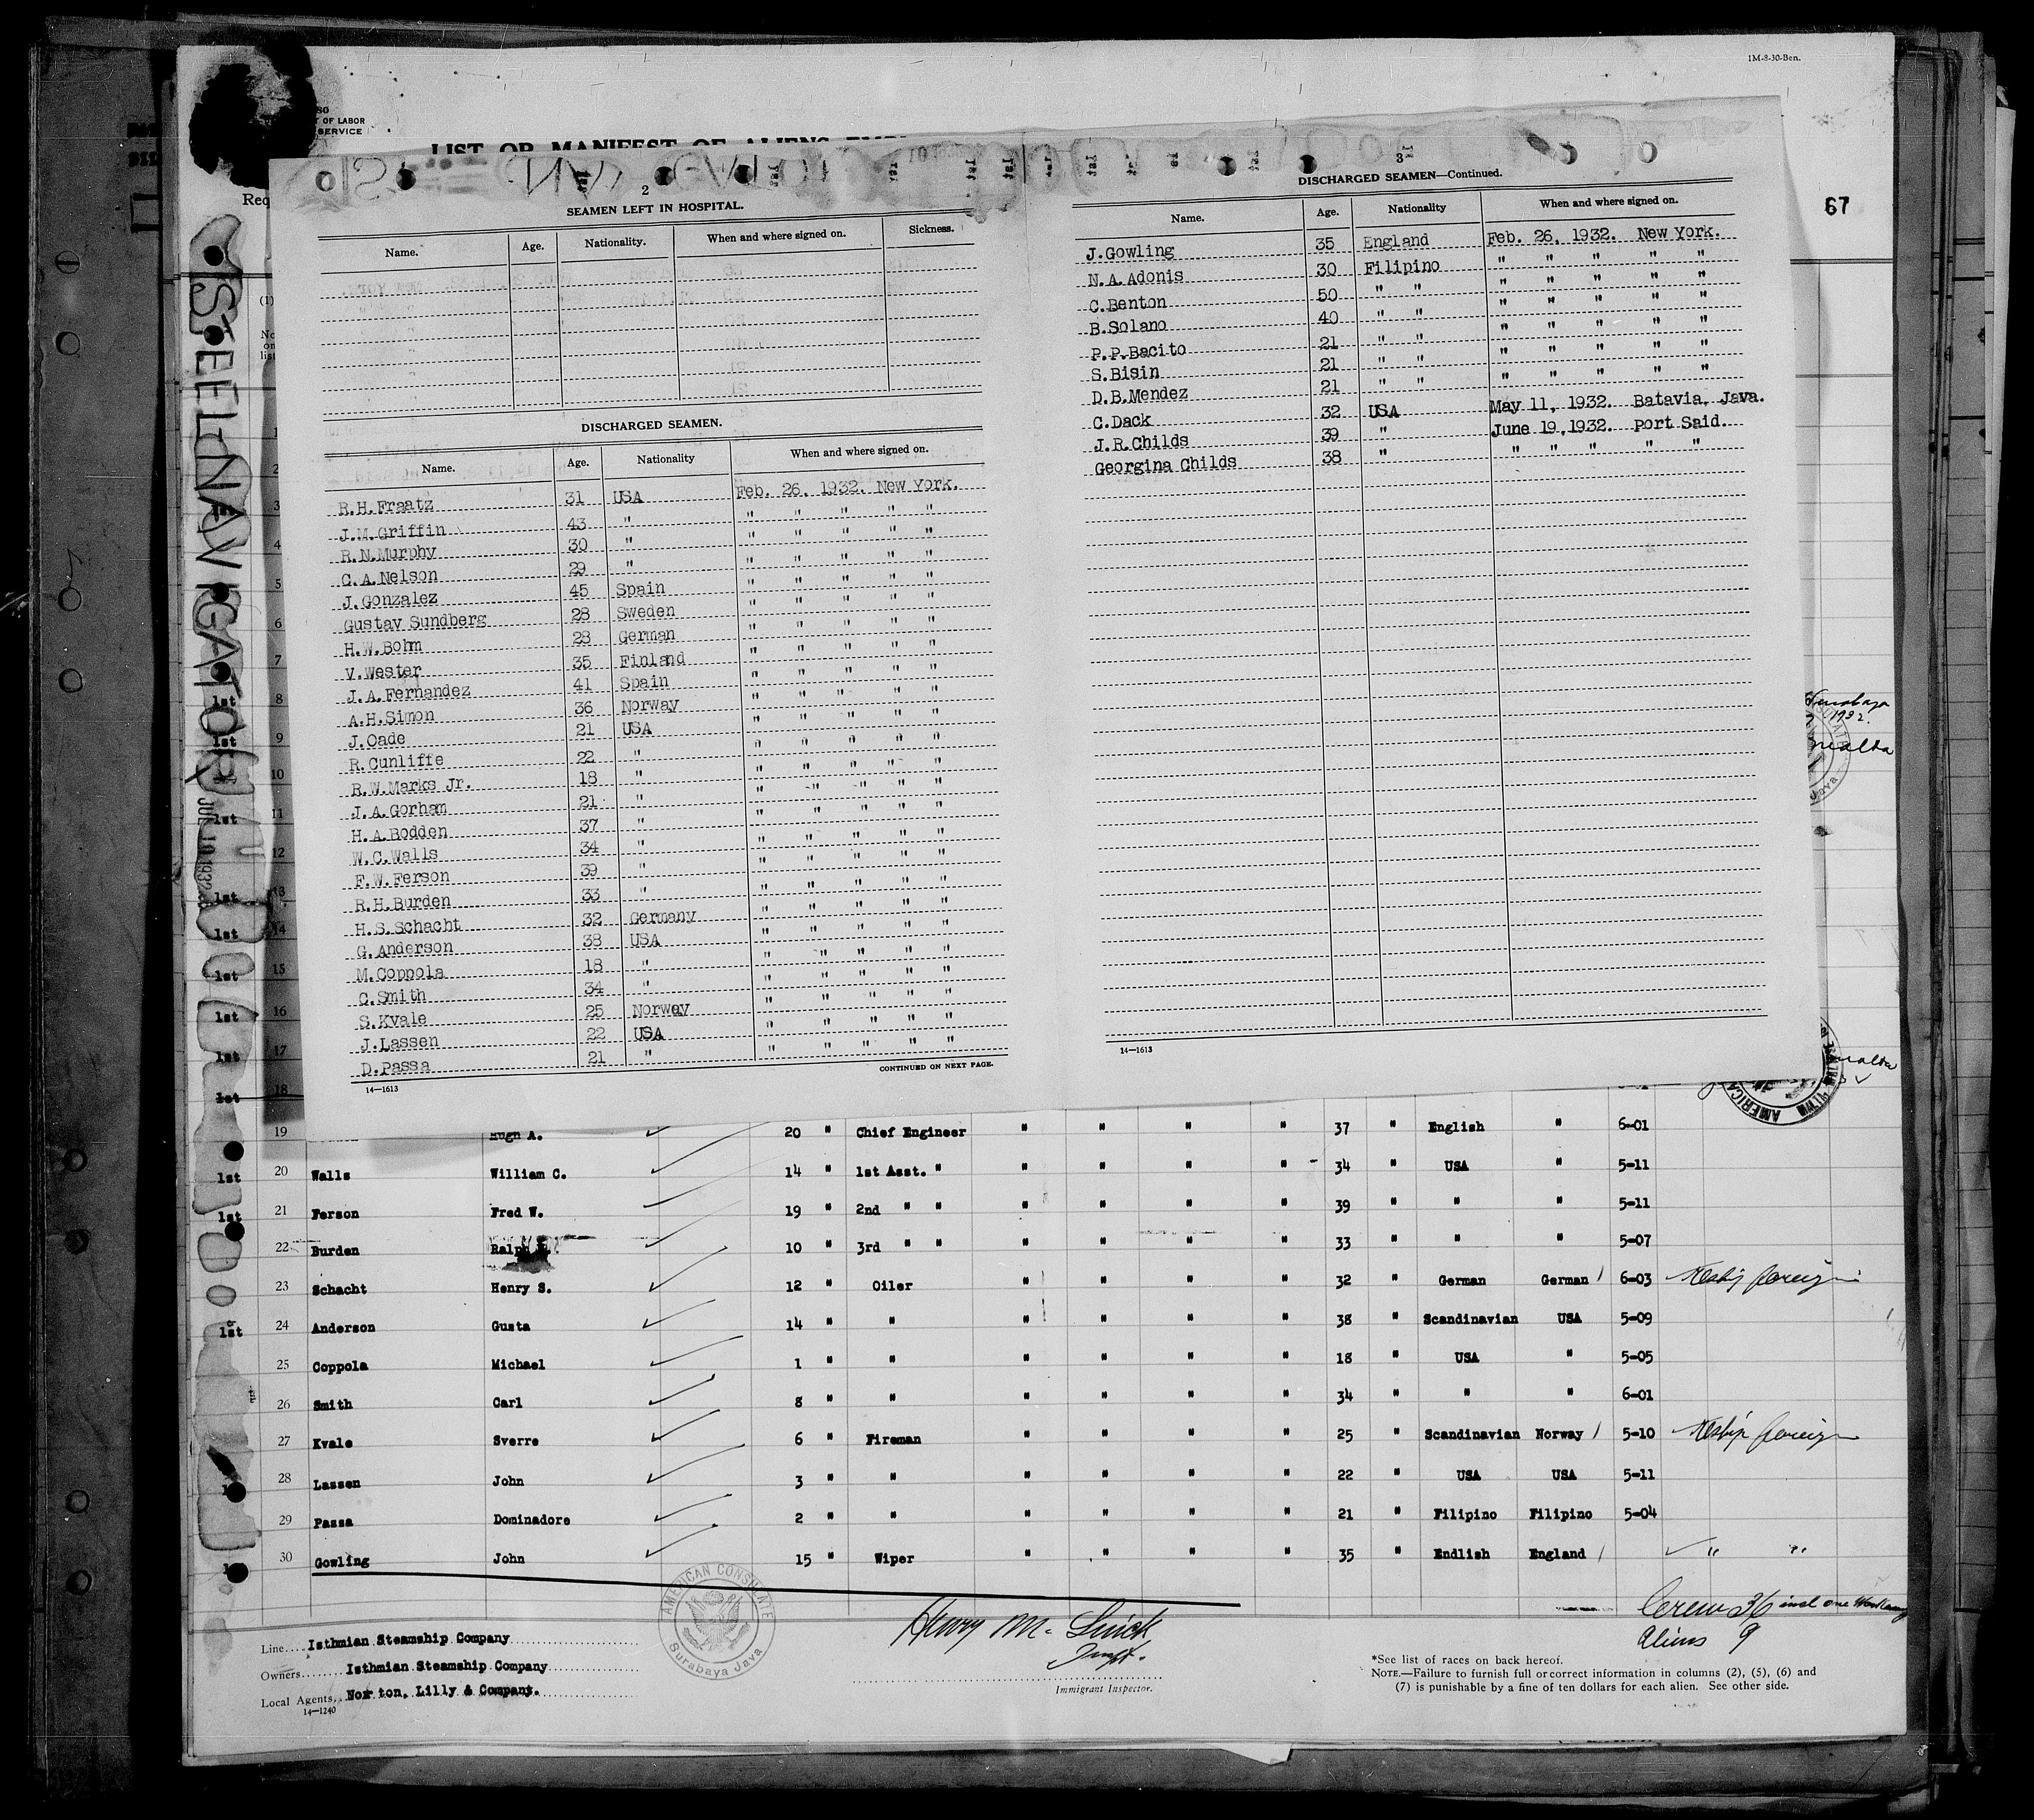 1M-8-30-Ben.
OF LABOR
SERVICE
LIST OR MANIFEST OF ALIENS
Req
67
STEEL NAVIGATOR
JUL 10 1932
2
SEAMEN LEFT IN HOSPITAL.
Name. Age. Nationality. When and where signed on. Sickness.
DISCHARGED SEAMEN.
Name. Age. Nationality When and where signed on.
R.H.Fraatz 31 USA Feb. 26, 1932. New York.
J.M.Griffin 43 " " " " " "
R.N.Murphy 30 " " " " " "
C.A.Nelson 29 " " " " " "
J.Gonzalez 45 Spain " " " " "
Gustav Sundberg 28 Sweden " " " " "
H.W.Bohm 28 German " " " " "
V.Wester 35 Finland " " " " "
J.A.Fernandez 41 Spain " " " " "
A.H.Simon 36 Norway " " " " "
J.Oade 21 USA " " " " "
R.Cunliffe 22 " " " " " "
R.W.Marks Jr. 18 " " " " " "
J.A.Gorham 21 " " " " " "
H.A.Bodden 37 " " " " " "
W.C.Walls 34 " " " " " "
F.W.Ferson 39 " " " " " "
R.H.Burden 33 " " " " " "
H.S.Schacht 32 Germany " " " " "
G.Anderson 38 USA " " " " "
M.Coppola 18 " " " " " "
C.Smith 34 " " " " " "
S.Kvale 25 Norway " " " " "
J.Lassen 22 USA " " " " "
D.Passa 21 " " " " " "
14—1613
CONTINUED ON NEXT PAGE.
3
DISCHARGED SEAMEN—Continued.
Name. Age. Nationality When and where signed on.
J.Gowling 35 England Feb. 26, 1932. New York.
N.A.Adonis 30 Filipino " " " " "
C.Benton 50 " " " " " " "
B.Solano 40 " " " " " " "
P.P.Bacito 21 " " " " " " "
S.Bisin 21 " " " " " " "
D.B.Mendez 21 " " " " " " "
C.Dack 32 USA May 11, 1932. Batavia, Java.
J.R.Childs 39 " June 19,1932. Port Said.
Georgina Childs 38 " " " " " "
14—1613
Surabaya
1932.
Malta
19 Hugh A. 20 " Chief Engineer " " " " 37 " English " 6-01
1st 20 Walls William C. 14 " 1st Asst. " " " " " 34 " USA " 5-11
1st 21 Ferson Fred W. 19 " 2nd " " " " " " 39 " " " 5-11
22 Burden Ralph H. 10 " 3rd " " " " " " 33 " " " 5-07
23 Schacht Henry S. 12 " Oiler " " " " 32 " German German 6-03 Reship foreign
1st 24 Anderson Gusta 14 " " " " " " 38 " Scandinavian USA 5-09
25 Coppola Michael 1 " " " " " " 18 " USA " 5-05
26 Smith Carl 8 " " " " " " 34 " " " 6-01
27 Kvale Sverre 6 " Fireman " " " " 25 " Scandinavian Norway 5-10 Reship foreign
28 Lassen John 3 " " " " " " 22 " USA USA 5-11
29 Passa Dominadore 2 " " " " " " 21 " Filipino Filipino 5-04
30 Gowling John 15 " Wiper " " " " 35 " Endlish England " "
AMERICAN CONSULATE
Surabaya Java
Crew 36 incl one Workaway
Aliens 9
Line.... Isthmian Steamship Company
Owners....... Isthmian Steamship Company
Local Agents.. Norton, Lilly & Company.
14—1240
Immigrant Inspector.
*See list of races on back hereof.
NOTE.—Failure to furnish full or correct information in columns (2), (5), (6) and
(7) is punishable by a fine of ten dollars for each alien. See other side.